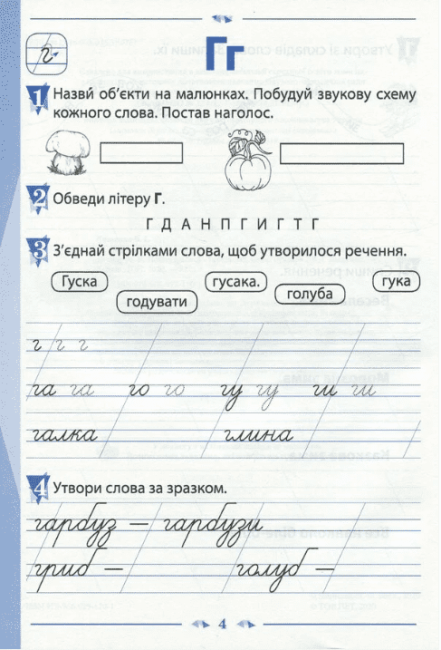 г Гг
1 Назви́ об’єкти на малюнках. Побудуй звукову схему
кожного слова. Постав наголос.
2 Обведи літеру Г.
Г Д А Н П Г И Г Т Г
3 З’єднай стрілками слова, щоб утворилося речення.
Гуска годувати гусака. голуба гука
г г г
га га го го гу гу ги ги
галка глина
4 Утвори слова за зразком.
гарбуз — гарбузи
гриб — голуб —
4